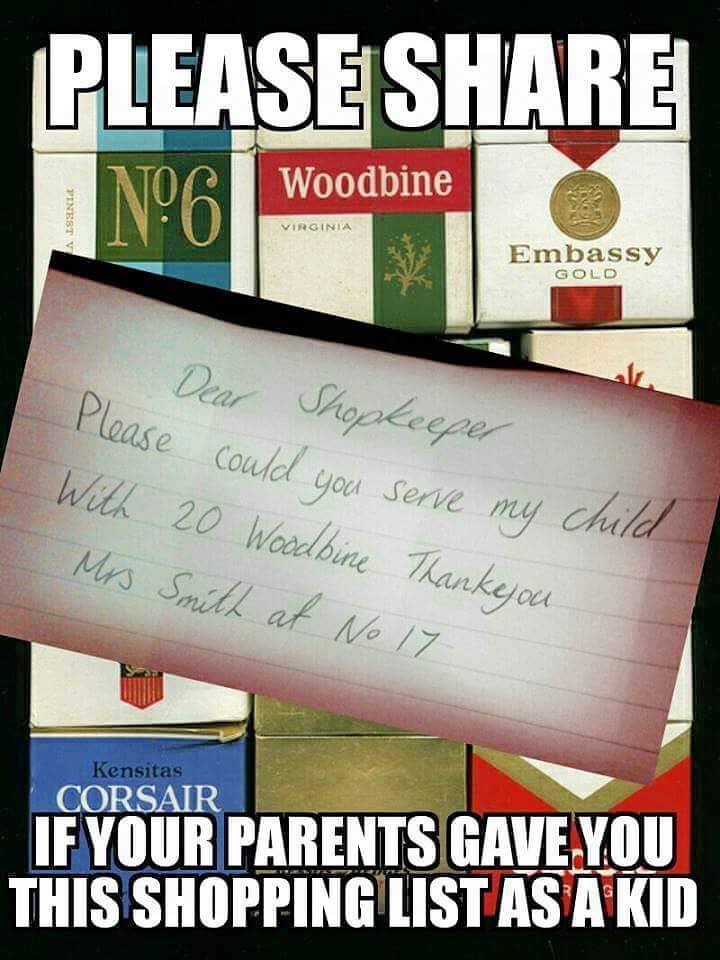 PLEASE SHARE
FINEST V
Nº6
Woodbine
VIRGINIA
Embassy
GOLD
Dear Shopkeeper
Please could you serve my child
With 20 Woodbine Thankyou
Mrs Smith at No 17
Kensitas
CORSAIR
IF YOUR PARENTS GAVE YOU
THIS SHOPPING LIST AS A KID